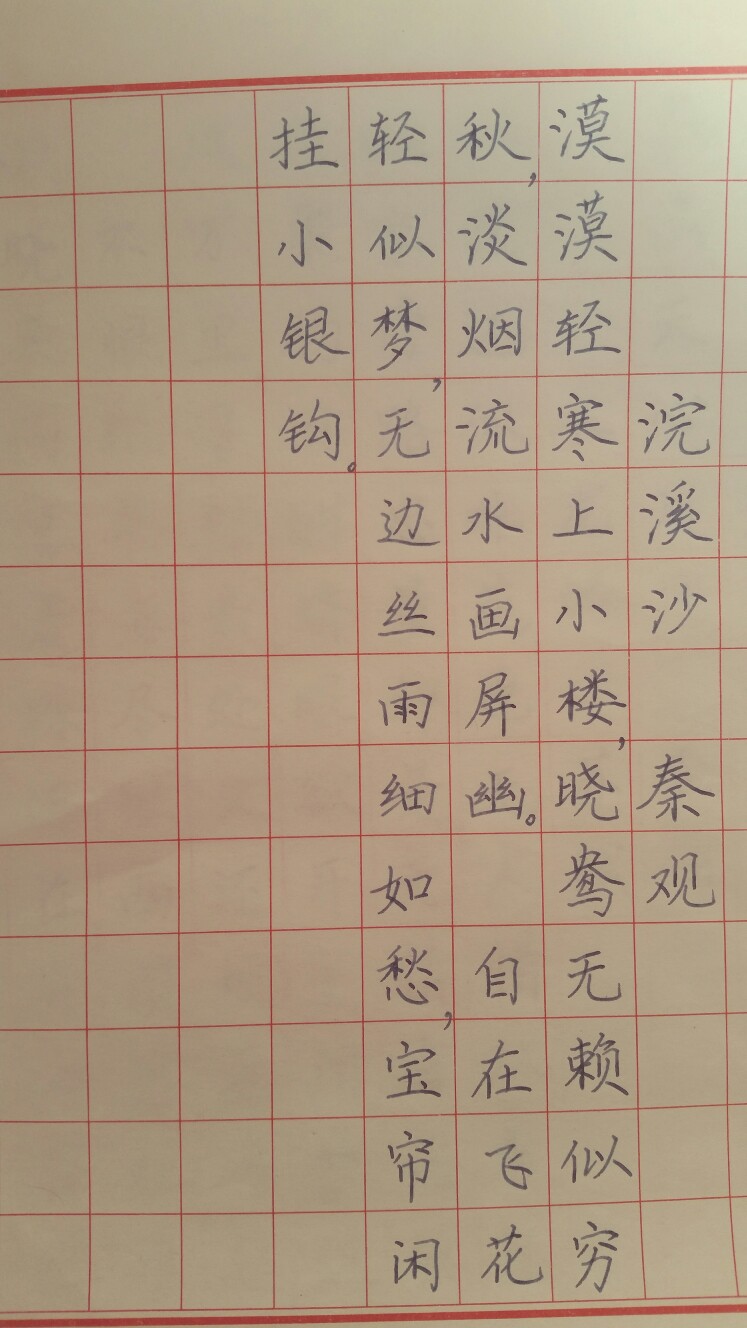 浣溪沙 秦观
漠漠轻寒上小楼,晓鸯无赖似穷
秋,淡烟流水画屏幽。 自在飞花
轻似梦,无边丝雨细如愁,宝帘闲
挂小银钩。